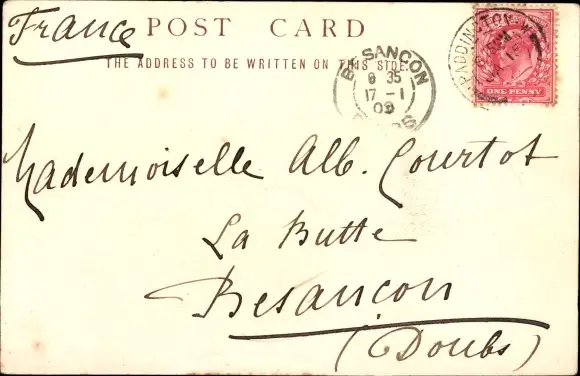 France
POST CARD
THE ADDRESS TO BE WRITTEN ON THIS SIDE
BESANCON
8 35
17 - 1
03
DOUBS
PADDINGTON
ONE PENNY
Mademoiselle Alb. Courtot
La Butte
Besançon
(Doubs)